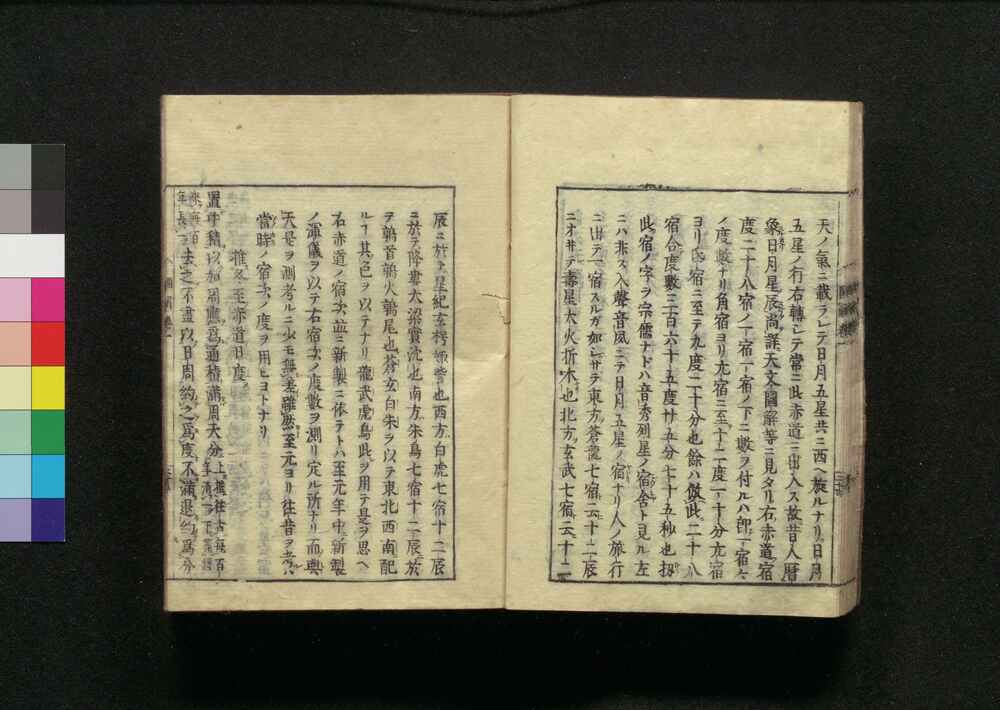 天ノ氣ニ載ラレテ日月五星共ニ西ヘ旋ルナリ日月
五星ノ行右轉シテ常ニ此赤道ニ出入ス故昔人暦
象日月星辰尚詳天文圖解等ニ見タリ右赤道宿
度二十八宿ノ一宿一宿ノ下ニ數ヲ付ルハ即一宿
ノ度數ナリ角宿ヨリ亢宿ニ至テ十二度一十分亢宿
ヨリ氐宿ニ至テ九度二十分也餘ハ倣此二十八
宿合度數三百六十五度廿五分七十五秒也扨
此宿ノ字ヲ宗儒ナドハ音秀列星ノ宿舍ト見ル左
ニハ非ス入聲音夙ニテ日月五星ノ宿ナリ人ノ旅行
ニ出テ一宿スルガ如シサテ東方蒼龍七宿云十二辰
ニオサテ壽星大火折木也北方玄武七宿云十二
辰ニ於テ星紀玄枵娵訾也西方白虎七宿十二辰
ニ於テ降婁大梁實沈也南方朱鳥七宿十二辰於
ヲ鶉首鶉火鶉尾也蒼玄白朱ヲ以テ東北西南配
ルヿ其色ヲ以テナリ龍武虎鳥此ヲ用テ是ヲ思ヘ
右赤道ノ宿次並ニ新製ニ依テトハ至元年中ノ新製
ノ渾儀ヲ以テ右宿次ノ度數ヲ測リ定ル所ナリ而與
天是ヲ測考ルニ少モ無差雖然至元ヨリ往昔ヲ考
當時ノ宿次ノ度ヲ用ヒヨトナリ
推冬至赤道日度
置中積以加周應爲通積滿周天分上推往古每百
年消一下
每百年長一去之不盡以日周約之爲度不滿退約爲分